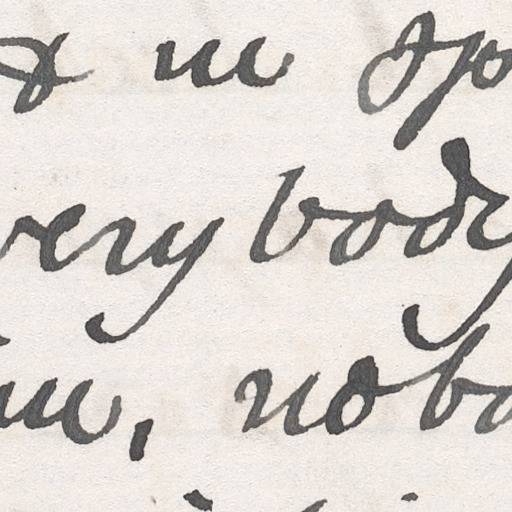 & in sp
very body
in, nobo